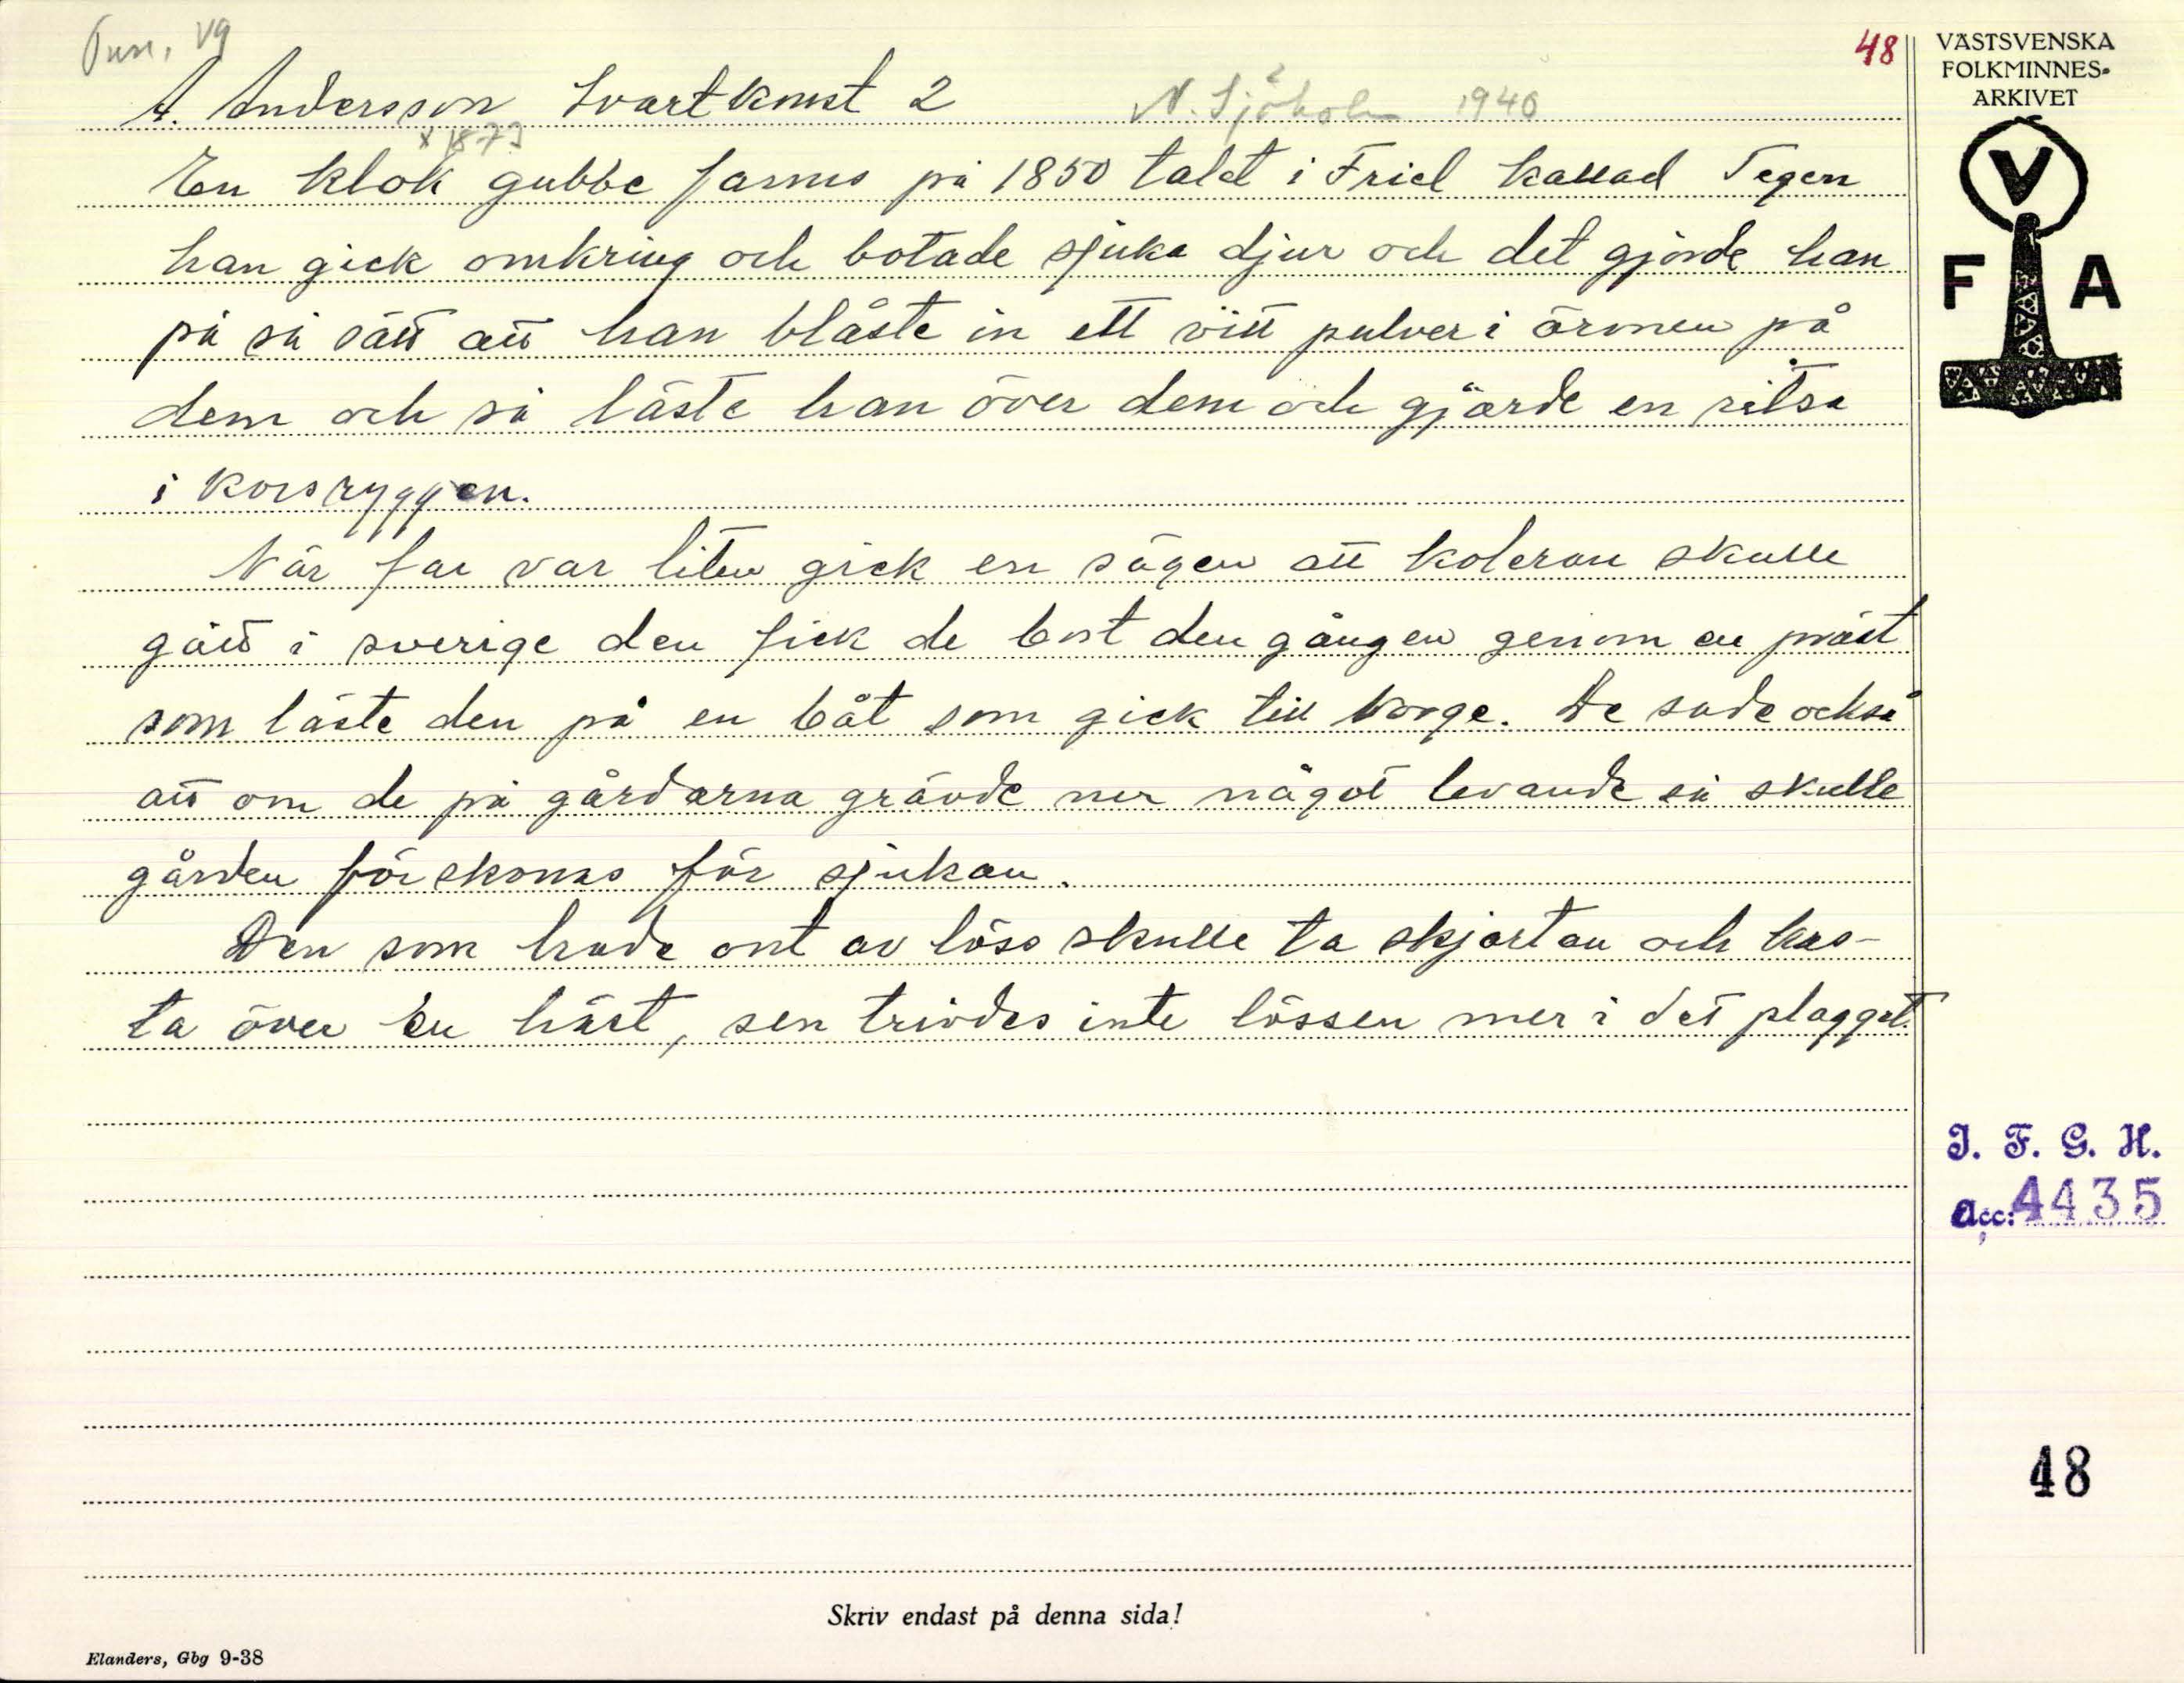 Tun, Vg
48
VÄSTSVENSKA
FOLKMINNES-
ARKIVET
A. Andersson Svartkonst 2 N. Sjöholm 1940
x 1873
V
F A
En klok gubbe fanns på 1850 talet i Friel kallad Tegen
han gick omkring och botade sjuka djur och det gjorde han
på så sätt att han blåste in ett vitt pulver i öronen på
dem och så läste han över dem och gjorde en ritsa
i korsryggen.
När far var liten gick en sägen att koleran skulle
gått i sverige den fick de bort den gången genom en präst
som läste den på en båt som gick till Norge. De sade också
att om de på gårdarna grävde ner något levande så skulle
gården förskonas för sjukan.
Den som hade ont av löss skulle ta skjortan och kas-
ta över en häst, sen trivdes inte lössen mer i det plagget.
I. F. G. H.
Acc: 4435
48
Skriv endast på denna sida!
Elanders, Gbg 9-38